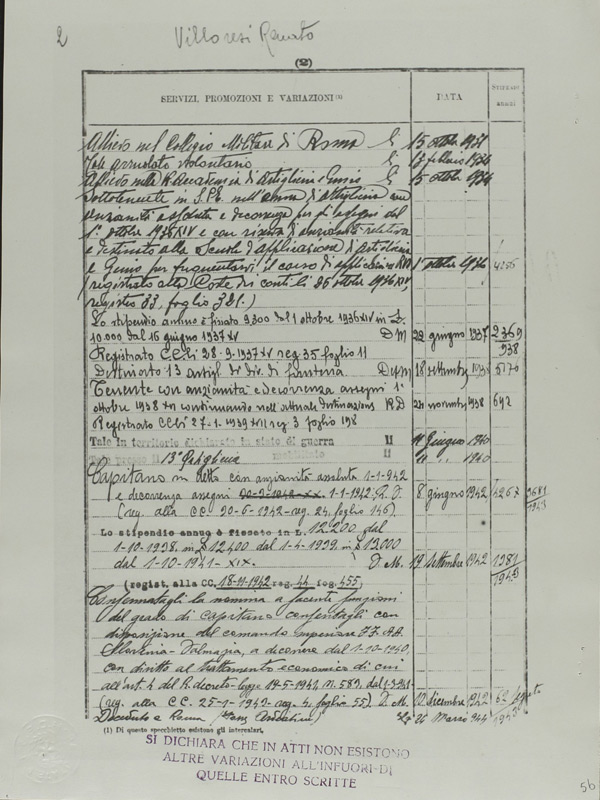 2
Villoresi Renato
(2)
SERVIZI, PROMOZIONI E VARIAZIONI (1) DATA STIPENDI annui
Allievo nel Collegio Militare di Roma li 15 ottobre 1931
Tale arruolato volontario li 1934
Allievo nella R. Accademia di Artiglieria e Genio li 15 ottobre 1934
Sottotenente in S.P.E. nell'arma d'artiglieria con
anzianità assoluta e decorrenza per gli assegni dal
1° ottobre 1936 XIV e con riserva d'anzianità relativa
e destinato alla Scuola d'applicazione d'artiglieria
e Genio per frequentarvi il corso di applicazione RD 1 ottobre 1936
(registrato alla Corte dei conti li 26 ottobre 1936 XIV,
registro 33, foglio 381.)
Lo stipendio annuo è fissato 9.300 dal 1 ottobre 1936 XIV in L.
10.000 dal 16 giugno 1937 XV D M 22 giugno 1937 2369
938
Registrato CC li 28-9-1937 XV reg. 35 foglio 11
Destinato 13 artigl. div. di fanteria 18 settembre 1938
Tenente con anzianità e decorrenza assegni 1°
ottobre 1938 XVI continuando nell'attuale destinazione R D 24 novembre 1938 642
Registrato CC li 27-1-1939 XVII reg. 3 foglio 198
Tale in territorio dichiarato in stato di guerra li 11 Giugno 1940
Tale presso il 13° Artiglieria mobilitato li " " 1940
Capitano in detta con anzianità assoluta 1-1-942
e decorrenza assegni 1-1-1942. R. D. 8 giugno 1942 4267
(reg. alla CC 20-6-1942 - reg. 24, foglio 146)
Lo stipendio annuo è fissato in L. 12.200 dal
1-10-1938. in £ 12400 dal 1-4-1939. in £ 13000
dal 1-10-1941-XIX. D. M. 19 Settembre 1942 1981
1943
(regist. alla CC. 18-11-1942 reg. 44 fog. 455)
Confermatagli la nomina a facente funzioni
del grado di Capitano conferitagli con
disposizione del comando Superiore FF. AA.
Slovenia-Dalmazia, a decorrere dal 1-10-1940,
con diritto al trattamento economico di cui
all'art. 4 del R. decreto-legge 19-5-1941, N. 583, dal 1-3-941
(reg. alla CC. 25-1-1943-reg. 4, foglio 55). D. M. 10 dicembre 1942 62
1943
Deceduto a Roma (Fosse Ardeatine) Li 24 Marzo 944
(1) Di questo specchietto esistono gli intercalari.
SI DICHIARA CHE IN ATTI NON ESISTONO
ALTRE VARIAZIONI ALL'INFUORI DI
QUELLE ENTRO SCRITTE
56